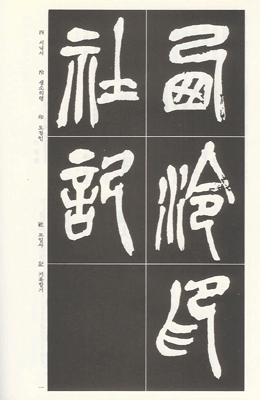 西泠印
社記
西 서녘서 泠 생소리령 印 도장인 社 모일사 記 기록할기
一